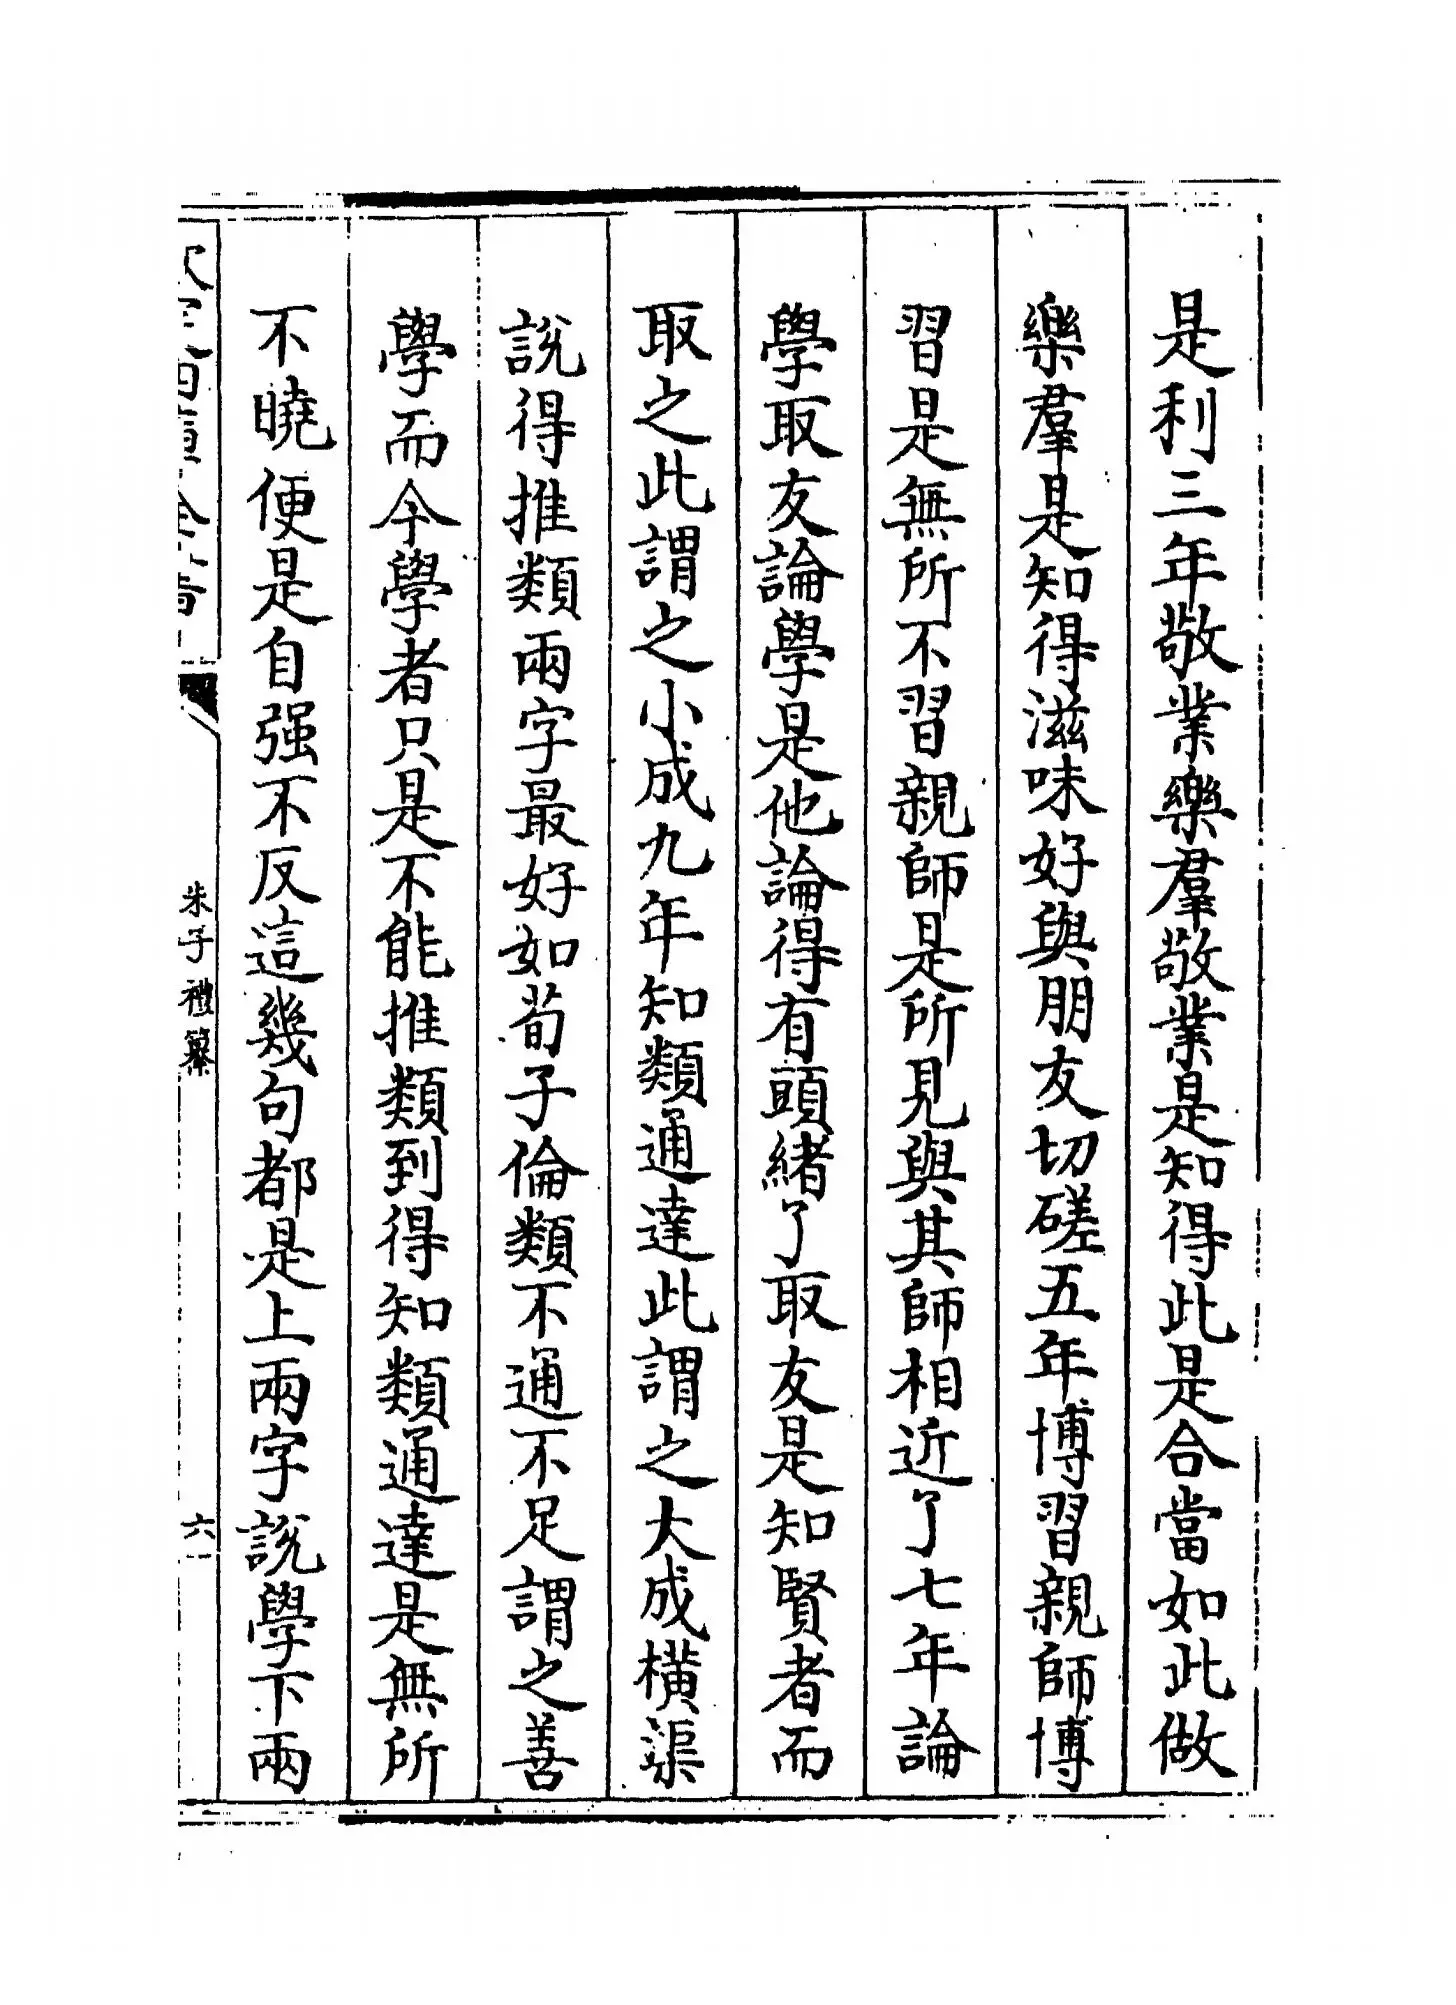 是利三年敬業樂羣敬業是知得此是合當如此做
樂羣是知得滋味好與朋友切磋五年博習親師博
習是無所不習親師是所見與其師相近了七年論
學取友論學是他論得有頭緒了取友是知賢者而
取之此謂之小成九年知類通達此謂之大成橫渠
說得推類兩字最好如荀子倫類不通不足謂之善
學而今學者只是不能推類到得知類通達是無所
不曉便是自强不反這幾句都是上兩字說學下兩
朱子禮纂
六